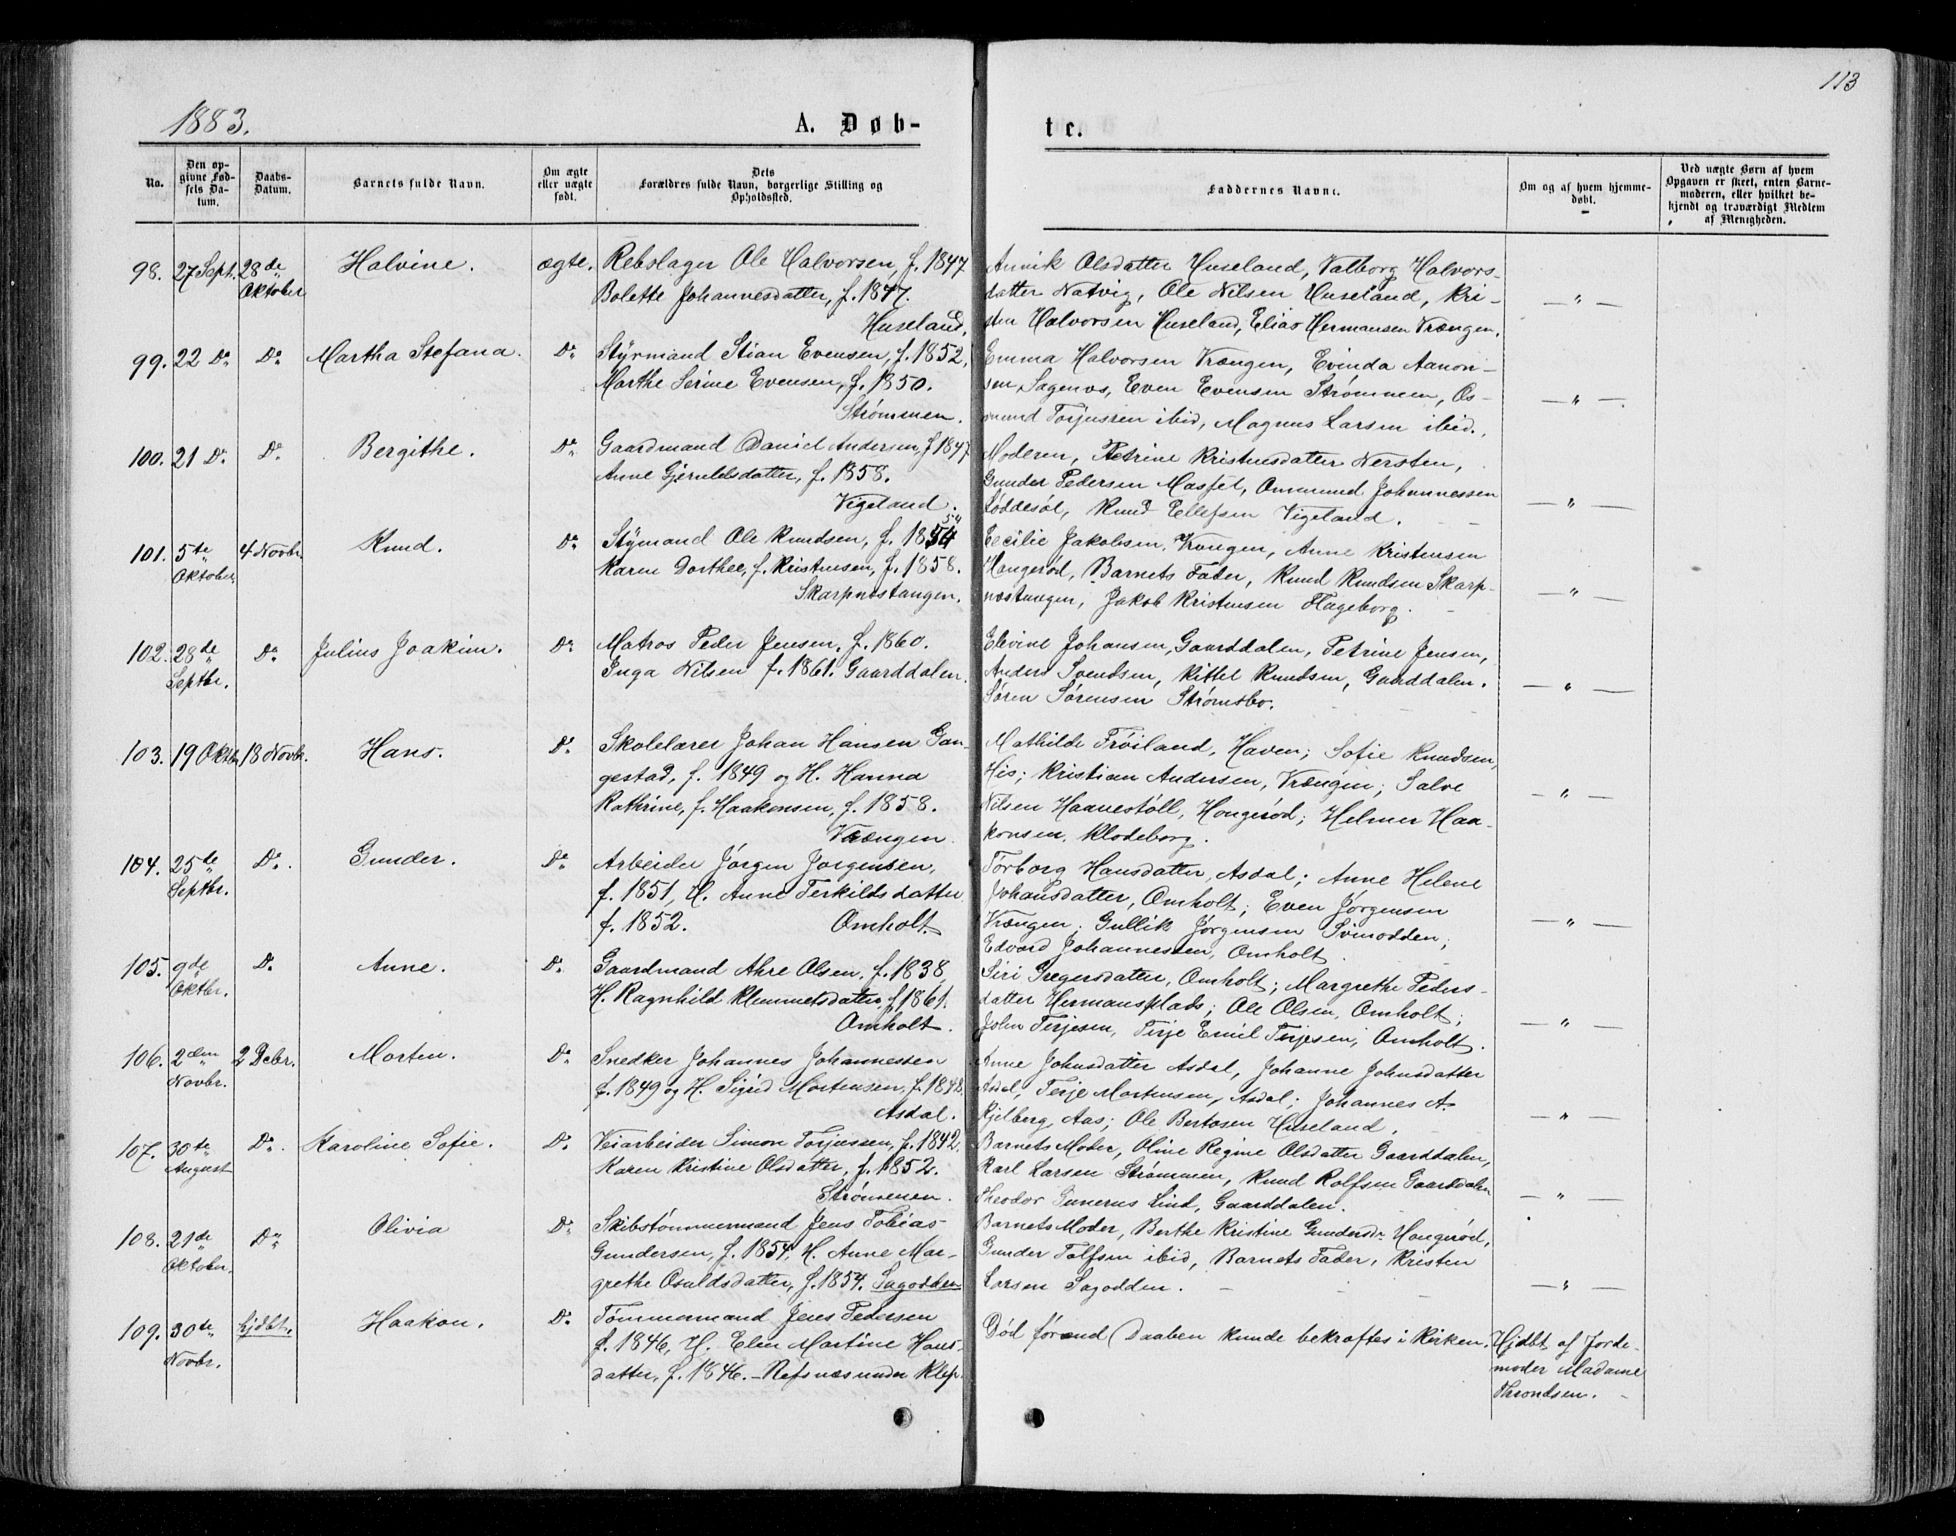 113
1883.
A. Døb-
te.
No.
Den op-
givne Fød-
sels Da-
tum.
Daabs-
Datum.
Barnets fulde Navn.
Om ægte
eller uægte
født.
Dets
Forældres fulde Navn, borgerlige Stilling og
Opholdssted.
Faddernes Navne.
Om og af hvem hjemme-
døbt.
Ved uægte Børn af hvem
Opgaven er skeet, enten Barne-
moderen, eller hvilket be-
kjendt og troværdigt Medlem
af Menigheden.
98. 27 Sept. 28de Oktober Halvine. ægte. Rebslager Ole Halvorsen, f. 1847
Bolette Johannesdatter, f. 1847.
Huseland.
Annik Olsdatter Huseland, Valborg Halvors-
datter Natvig, Ole Nilsen Huseland, Kri-
sten Halvorsen Huseland, Elias Hermansen Vrængen.
— " —
99. 22 Do Do Martha Stefana. Do Styrmand Stian Evensen, f. 1852,
Marthe Serine Evensen, f. 1850.
Strømmen.
Emma Halvorsen Vrængen, Evinda Aanon-
sen Sagenes, Even Evensen Strømmen, Os-
mund Torjussen ibid, Magnus Larsen ibid.
— " —
100. 21 Do Do Bergithe. Do Gaardmand Daniel Andersen, f 1847
Anne Gjeruldsdatter, f. 1858.
Vigeland.
Moderen, Petrine Kristensdatter Nersten,
Gunder Pedersen Masfet, Ommund Johannessen
Løddesøl, Knud Ellefsen Vigeland.
— " —
101. 5te Oktober 4 Novbr. Knud. Do Stymand Ole Knudsen, f. 1854 54
Karen Dorthee, f. Kristensen, f. 1858.
Skarpnestangen.
Cecilie Jakobsen, Vrængen, Anne Kristensen
Hongerød, Barnets Fader, Knud Knudsen Skarp-
nestangen, Jakob Kristensen Hageborg.
— " —
102. 28de Septbr. Do Julius Joakim. Do Matros Peder Jensen, f. 1860.
Inga Nilsen f. 1861. Gaarddalen.
Elevine Johansen, Gaarddalen, Petrine Jensen,
Anders Svendsen, Kittel Knudsen, Gaarddalen.
Søren Sørensen Strømsbo.
— " —
103. 19 Oktbr 18 Novbr. Hans. Do Skolelærer Johan Hansen Gan-
gestad, f. 1849 og H. Hanna
Kathrine, f. Haakonsen, f. 1858.
Vrængen
Mathilde Frøiland, Haven; Sofie Knudsen,
His; Kristian Andersen, Vrængen; Salve
Nilsen Haavestøll, Hongerød; Helmer Haa-
konsen, Klodeborg.
— " —
104. 25de Septbr. Do. Gunder. Do Arbeider Jørgen Jørgensen,
f. 1851, H. Anne Terkildsdatter
f. 1852. Omholt.
Torborg Hansdatter, Asdal; Anne Helene
Johansdatter, Omholt; Even Jørgensen
Vrængen; Gullik Jørgensen Svinodden;
Edvard Johannessen, Omholt.
— " —
105. 9de Oktbr. Do Anne. Do Gaardmand Ahre Olsen, f. 1838,
H. Ragnhild Klemmetsdatter, f 1861.
Omholt.
Siri Gregersdatter, Omholt; Margrethe Peders-
datter Hermansplads; Ole Olsen, Omholt;
John Terjesen, Terje Emil Terjesen, Omholt.
— " —
106. 2den Novbr. 2 Decbr. Morten. Do Snedker Johannes Johannessen
f. 1849 og H. Sigrid Mortensen, f. 1848
Asdal.
Anne Johnsdatter Asdal, Johanne Johnsdatter
Asdal, Terje Mortensen, Asdal; Johannes A.
Kjelberg, Aas; Ole Bertosen Huseland.
— " —
107. 30te August Do. Karoline Sofie. Do Veiarbeider Simon Torjussen, f. 1842
Karen Kristine Olsdatter, f. 1852.
Strømmen.
Barnets Moder, Oline Regine Olsdatter Gaarddalen,
Karl Larsen Strømmen, Knud Rolfsen Gaarddalen
Theodor Gunerus Lind, Gaarddalen.
— " —
108. 21de Oktober. Do Olivia Do Skibstømmermand Jens Tobias
Gundersen, f. 1854, H. Anne Mar-
grethe Osuldsdatter, f. 1854. Sagodden
Barnets Moder, Berthe Kristine Gundersdr Hongerød,
Gunder Tolfsen ibid, Barnets Fader, Kristen
Larsen Sagodden.
— " —
109. 30te Novbr. hjdbt. Haakon. Do Tømmermand Jens Pedersen
f. 1846, H. Elen Martine Hans-
datter, f. 1846. - Refsnæs under Klep.
Død førend Daaben kunde bekræftes i Kirken.
Hjdbt af Jorde-
moder Madame
Throndsen.